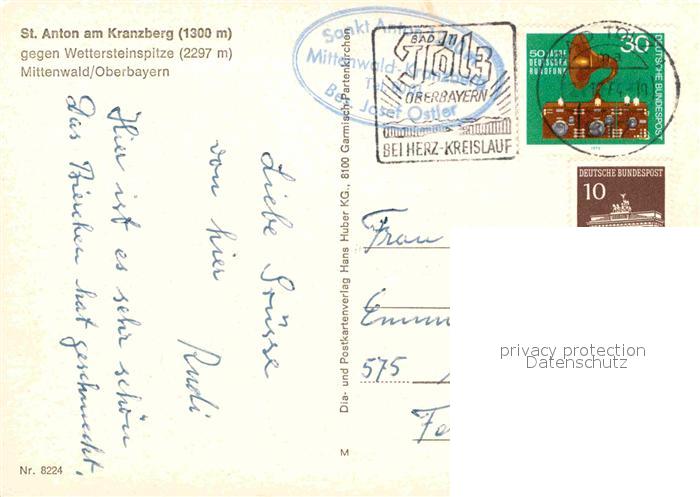 St. Anton am Kranzberg (1300 m)
gegen Wettersteinspitze (2297 m)
Mittenwald/Oberbayern
Sankt Anton
Mittenwald
Bes. Josef Ostler
BAD
TÖLZ
OBERBAYERN
BEI HERZ-KREISLAUF
50 JAHRE
DEUTSCHER
RUNDFUNK
30
DEUTSCHE BUNDESPOST
DEUTSCHE BUNDESPOST
10
Hier ist es sehr schön
Das Bierchen hat geschmeckt.
Liebe Grüsse
von hier
Rudi
Dia- und Postkartenverlag Hans Huber KG., 8100 Garmisch-Partenkirchen
M
Frau
575
privacy protection
Datenschutz
Nr. 8224